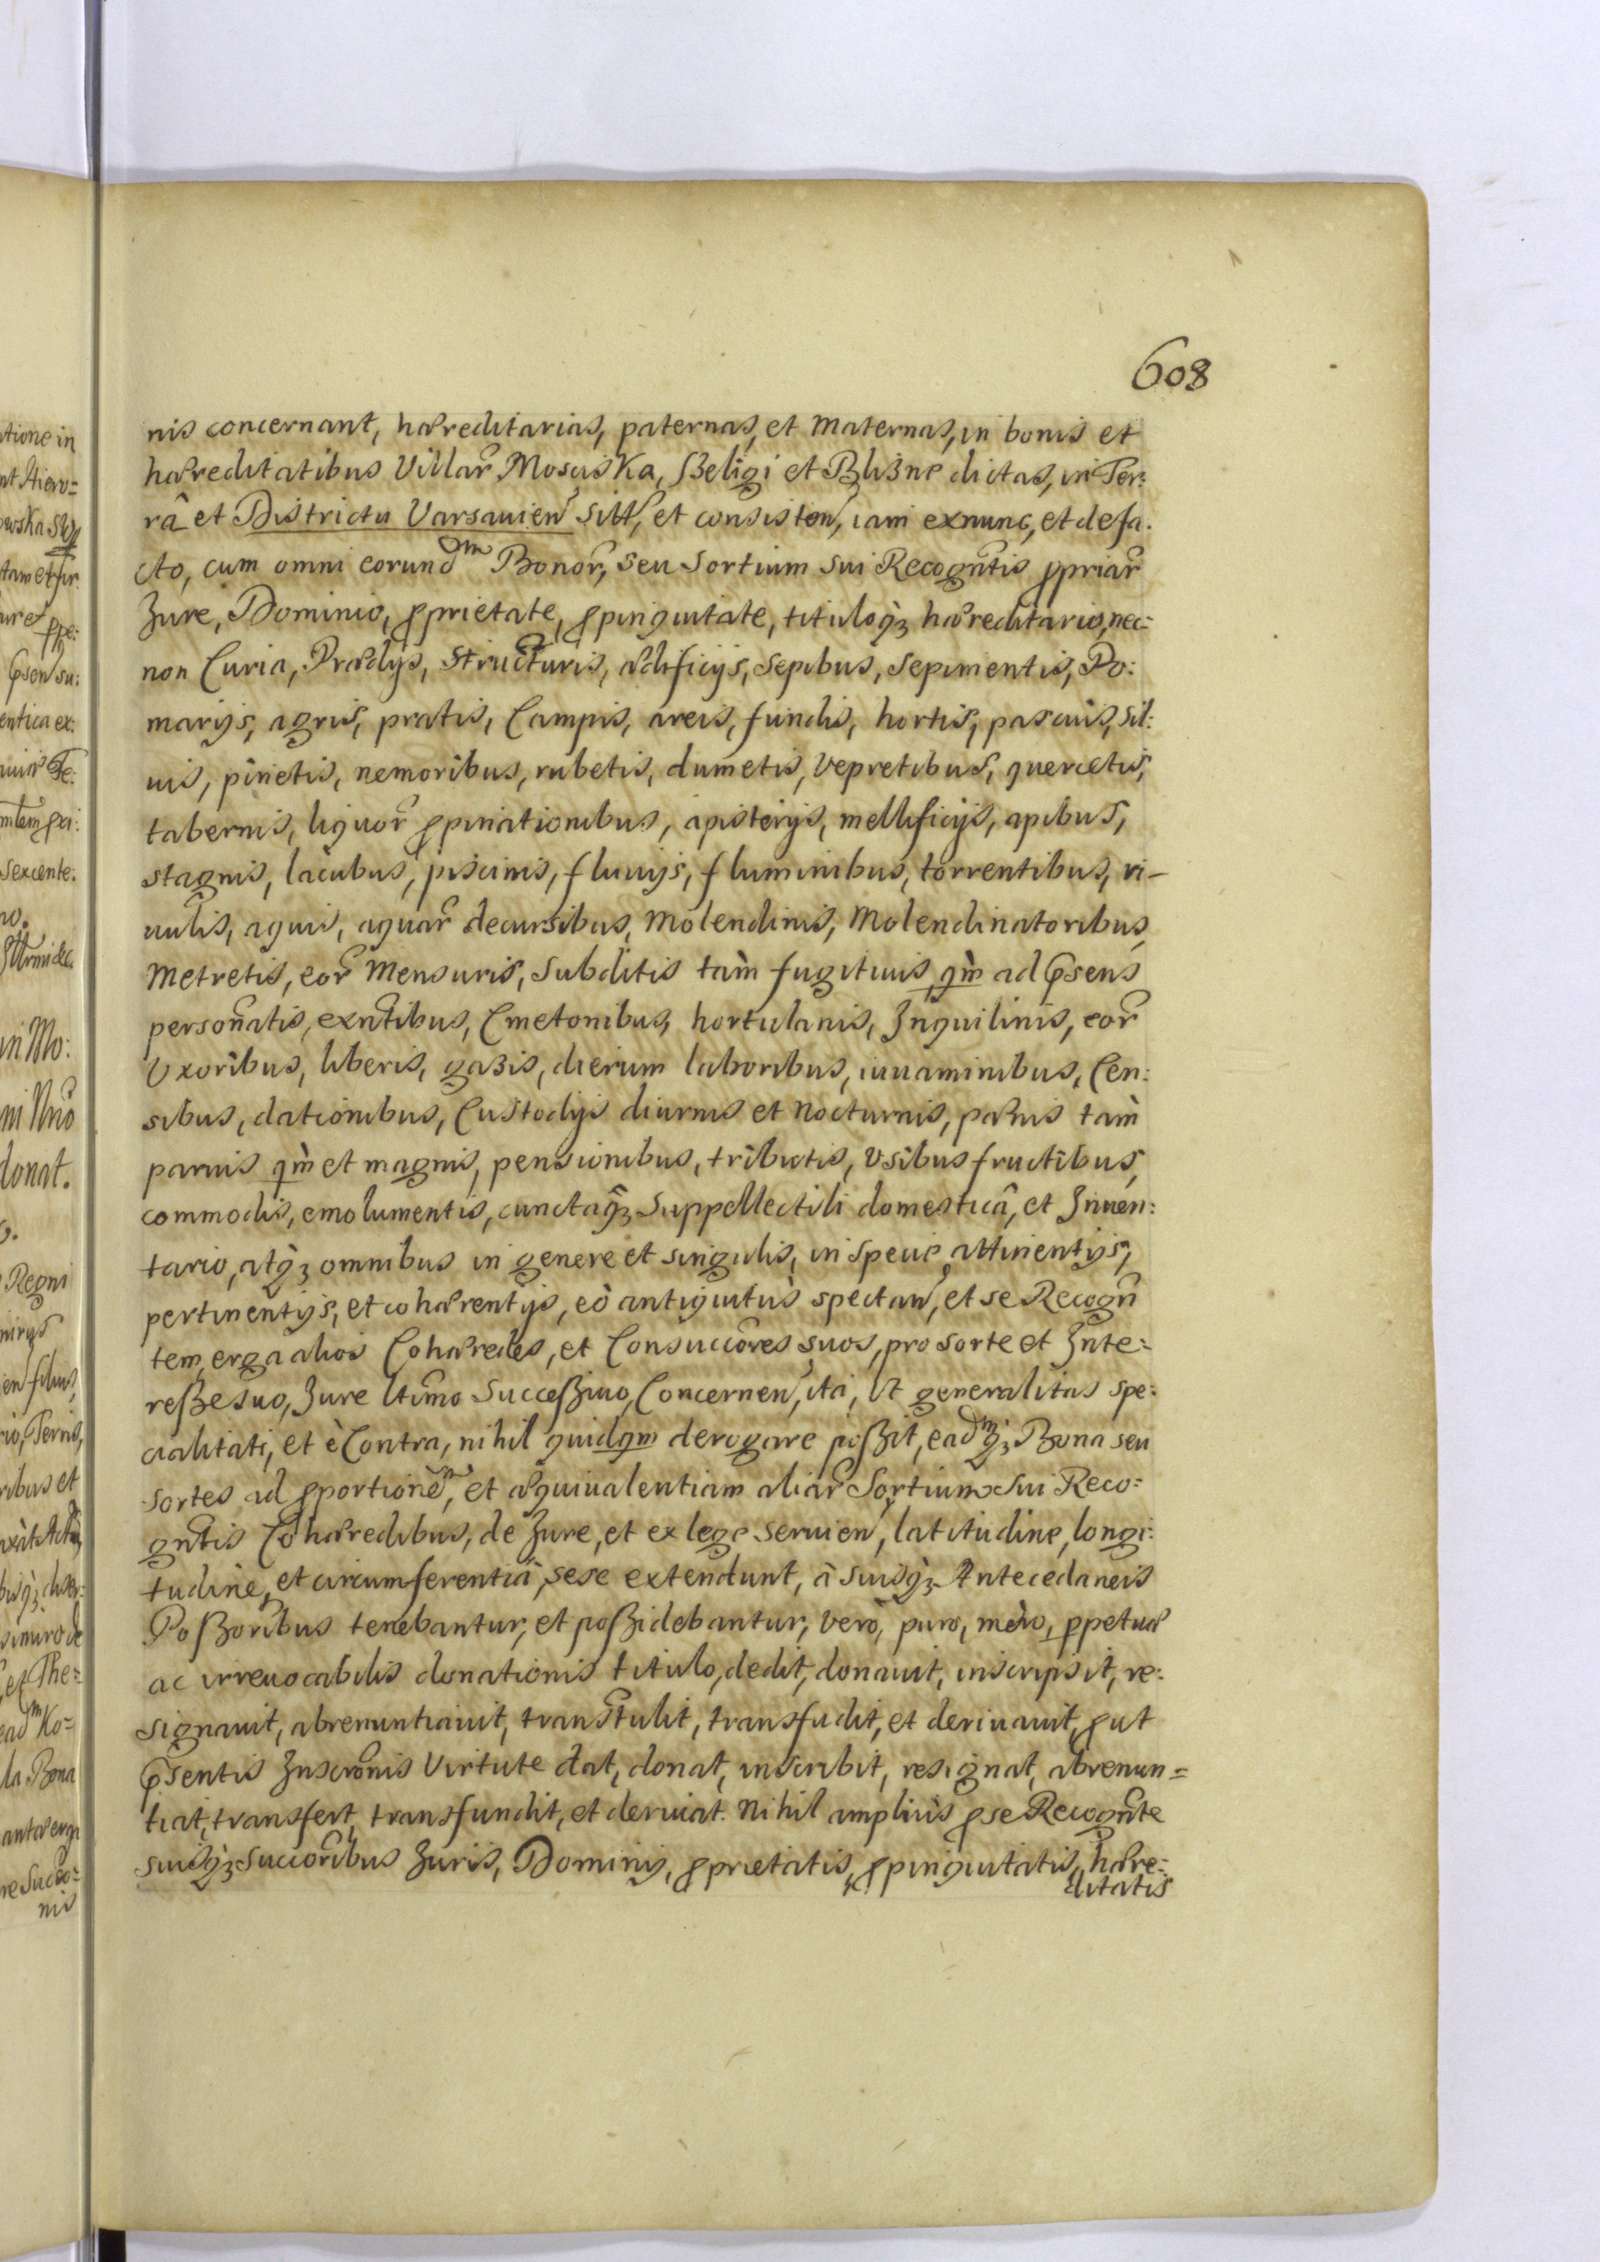 608
nis concernant, hæreditarias, paternas, et Maternas, in bonis et
hæreditatibus Villar Mosciska, Szeligi et Blizne dictas, in Ter:
râ et Districtu Varsauien sitt, et consisten, iam exnunc, et defa:
cto, cum omni eorundm Bonor, seu Sortium sui Recogntis ppriar
Jure, Dominio, pprietate, ppinquitate, tituloq3 hæreditario, nec:
non Curia, Prædijs, Structuris, ædificijs, Sepibus, Sepimentis, Po:
marijs, agris, pratis, Campis, areis, fundis, hortis, pascuis, Sil:
uis, pinetis, nemoribus, rubetis, dumetis, Vepretibus, quercetis,
tabernis, liquor ppinationibus, apisterijs, mellificijs, apibus,
stagnis, lacubus, piscinis, fluuijs, fluminibus, torrentibus, ri-
uulis, aquis, aquar decursibus, Molendinis, Molendinatoribus,
Metretis, eor Mensuris, Subditis tàm fugitiuis, qm̀ ad psens
personatis, exntibus, Cmetonibus, hortulanis, Inquilinis, eor
Vxoribus, liberis, gazis, dierum laboribus, iuuaminibus, Cen:
sibus, dationibus, Custodijs diurnis et Nocturnis, pænis tàm
paruis qm̀ et magnis, pensionibus, tributis, Vsibus fructibus,
commodis, emolumentis, cunctaq3 Suppellectili domesticâ, et Inuen:
tario, atq3 omnibus in genere et singulis, in Specie attinentijs,
pertinentijs, et cohærentijs, eò antiquitùs spectan, et se Recogn
tem, erga alios Cohæredes, et Consuccores suos, pro sorte et Inte:
resze suo, Jure ltimo Succesziuo, Concernen, ita, Vt generalitas spe:
cialitati, et è Contra, nihil quidqm derogare poszit, eadmq3 Bona seu
Sortes ad pportionem, et æquiualentiam aliar Sortium sui Reco:
gntis Cohæredibus, de Jure, et ex lege seruien, latitudine, longi:
tudine, et circumferentiâ, sese extendunt, â suisq3 Antecedaneis
Poszoribus tenebantur, et poszidebantur, Verò, puro, mèro, ppetuæ
ac irreuocabilis donationis titulo, dedit, donauit, inscripsit, re:
signauit, abrenuntiauit, transtulit, transfudit, et deriuauit, put
psentis Inscronis Virtute dat, donat, inscribit, resignat, abrenun=
tiat, transfert, transfundit, et deriuat. Nihil ampliùs p se Recognte
suisq3 Succoribus Juris, Dominij, pprietatis, ppinquitatis, hære:
ditatis